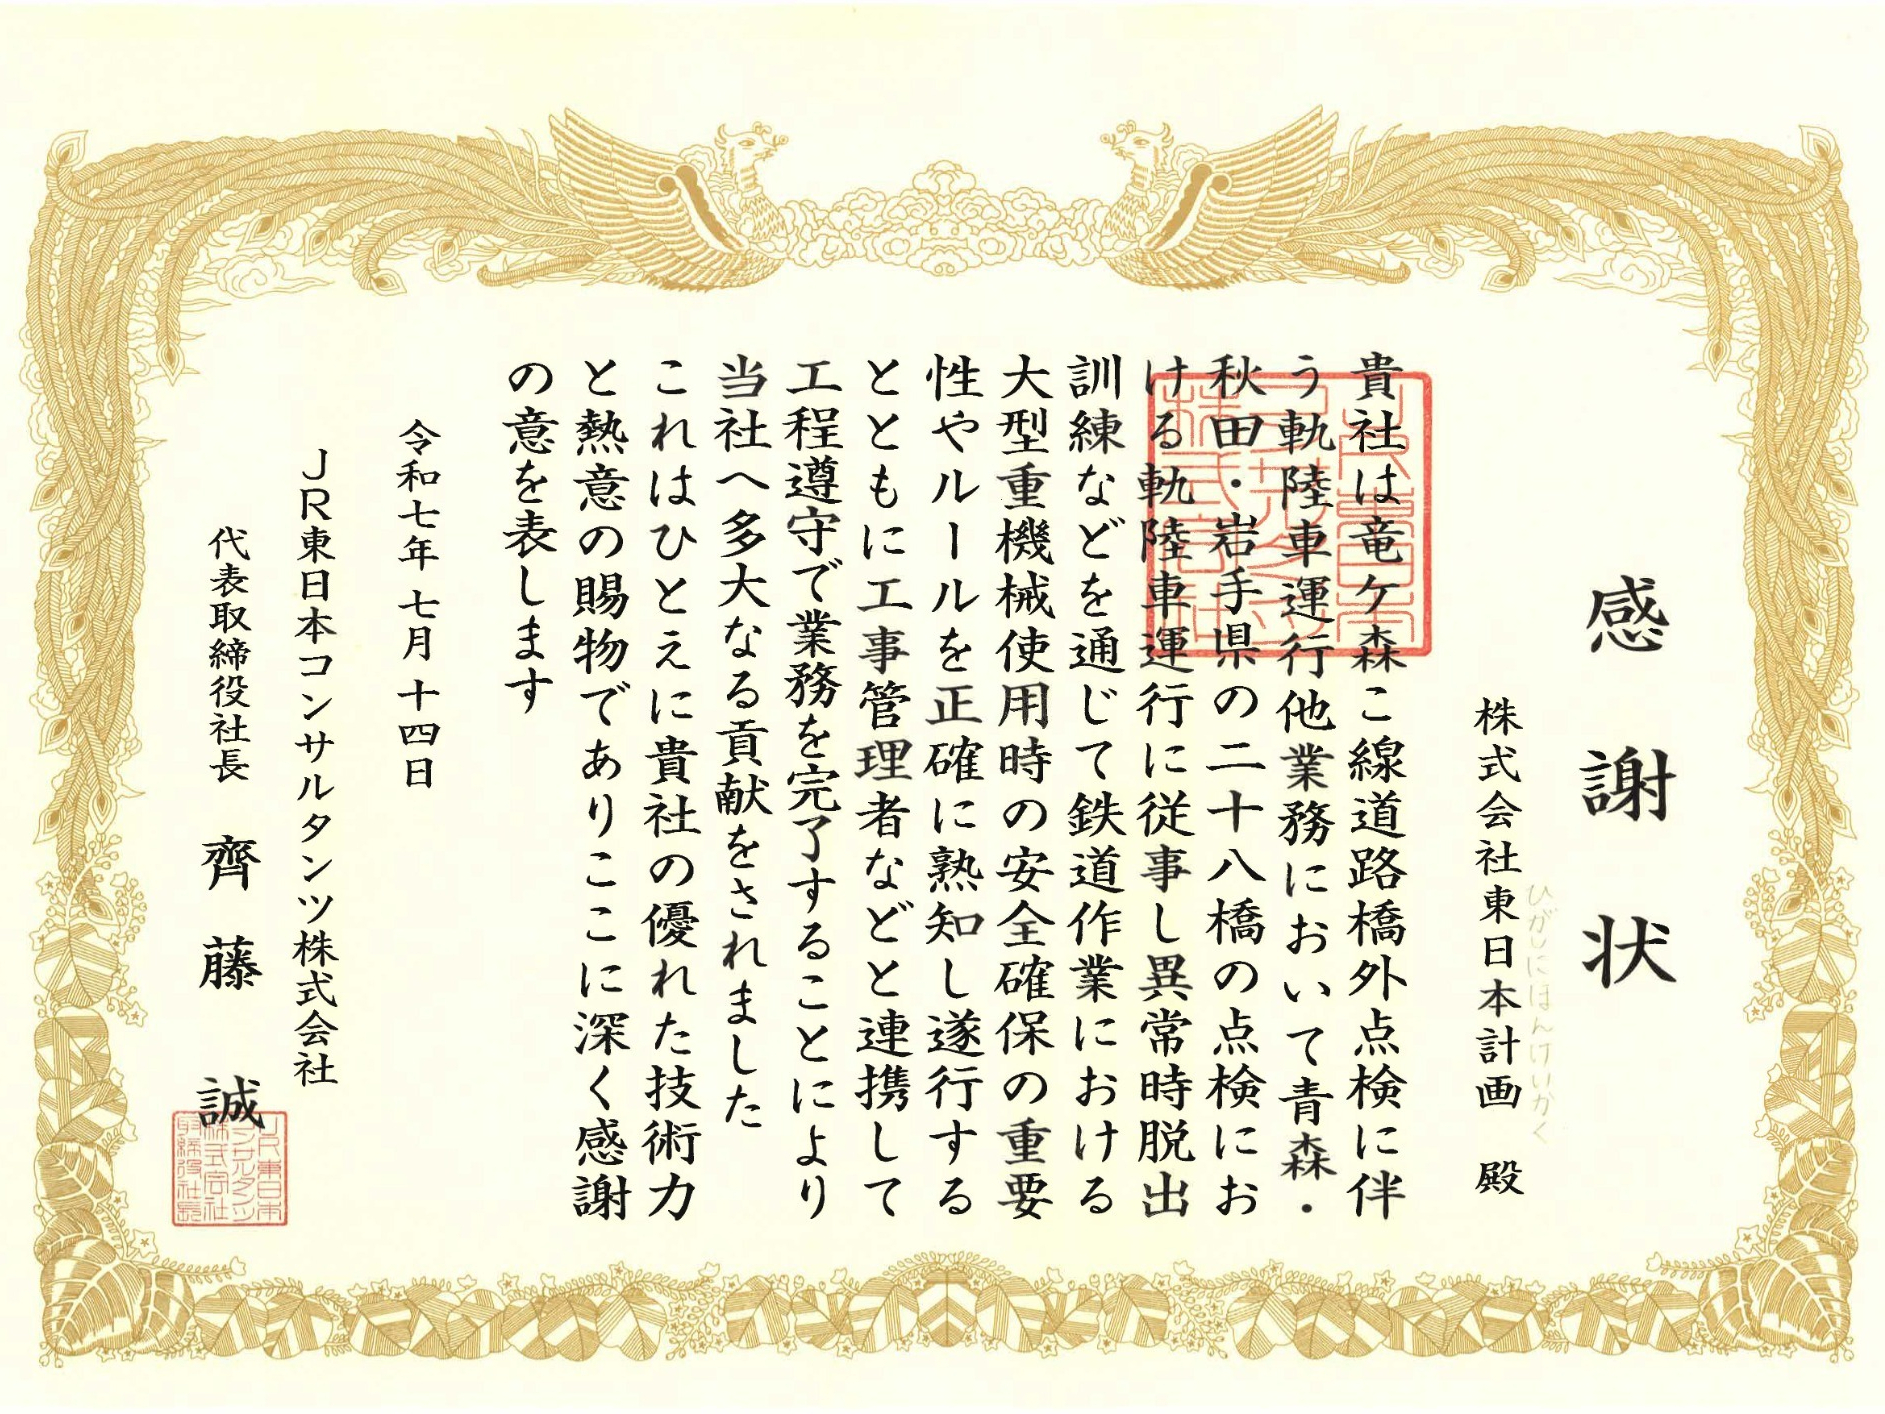 感謝状
株式会社東日本計画 殿
ひがしにほんけいかく
貴社は竜ケ森こ線道路橋外点検に伴
う軌陸車運行他業務において青森・
秋田・岩手県の二十八橋の点検にお
ける軌陸車運行に従事し異常時脱出
訓練などを通じて鉄道作業における
大型重機械使用時の安全確保の重要
性やルールを正確に熟知し遂行する
とともに工事管理者などと連携して
工程遵守で業務を完了することにより
当社へ多大なる貢献をされました
これはひとえに貴社の優れた技術力
と熱意の賜物でありここに深く感謝
の意を表します
令和七年七月十四日
JR東日本コンサルタンツ株式会社
代表取締役社長 齊藤 誠
JR東日本
コンサルタンツ
株式会社
取締役社長